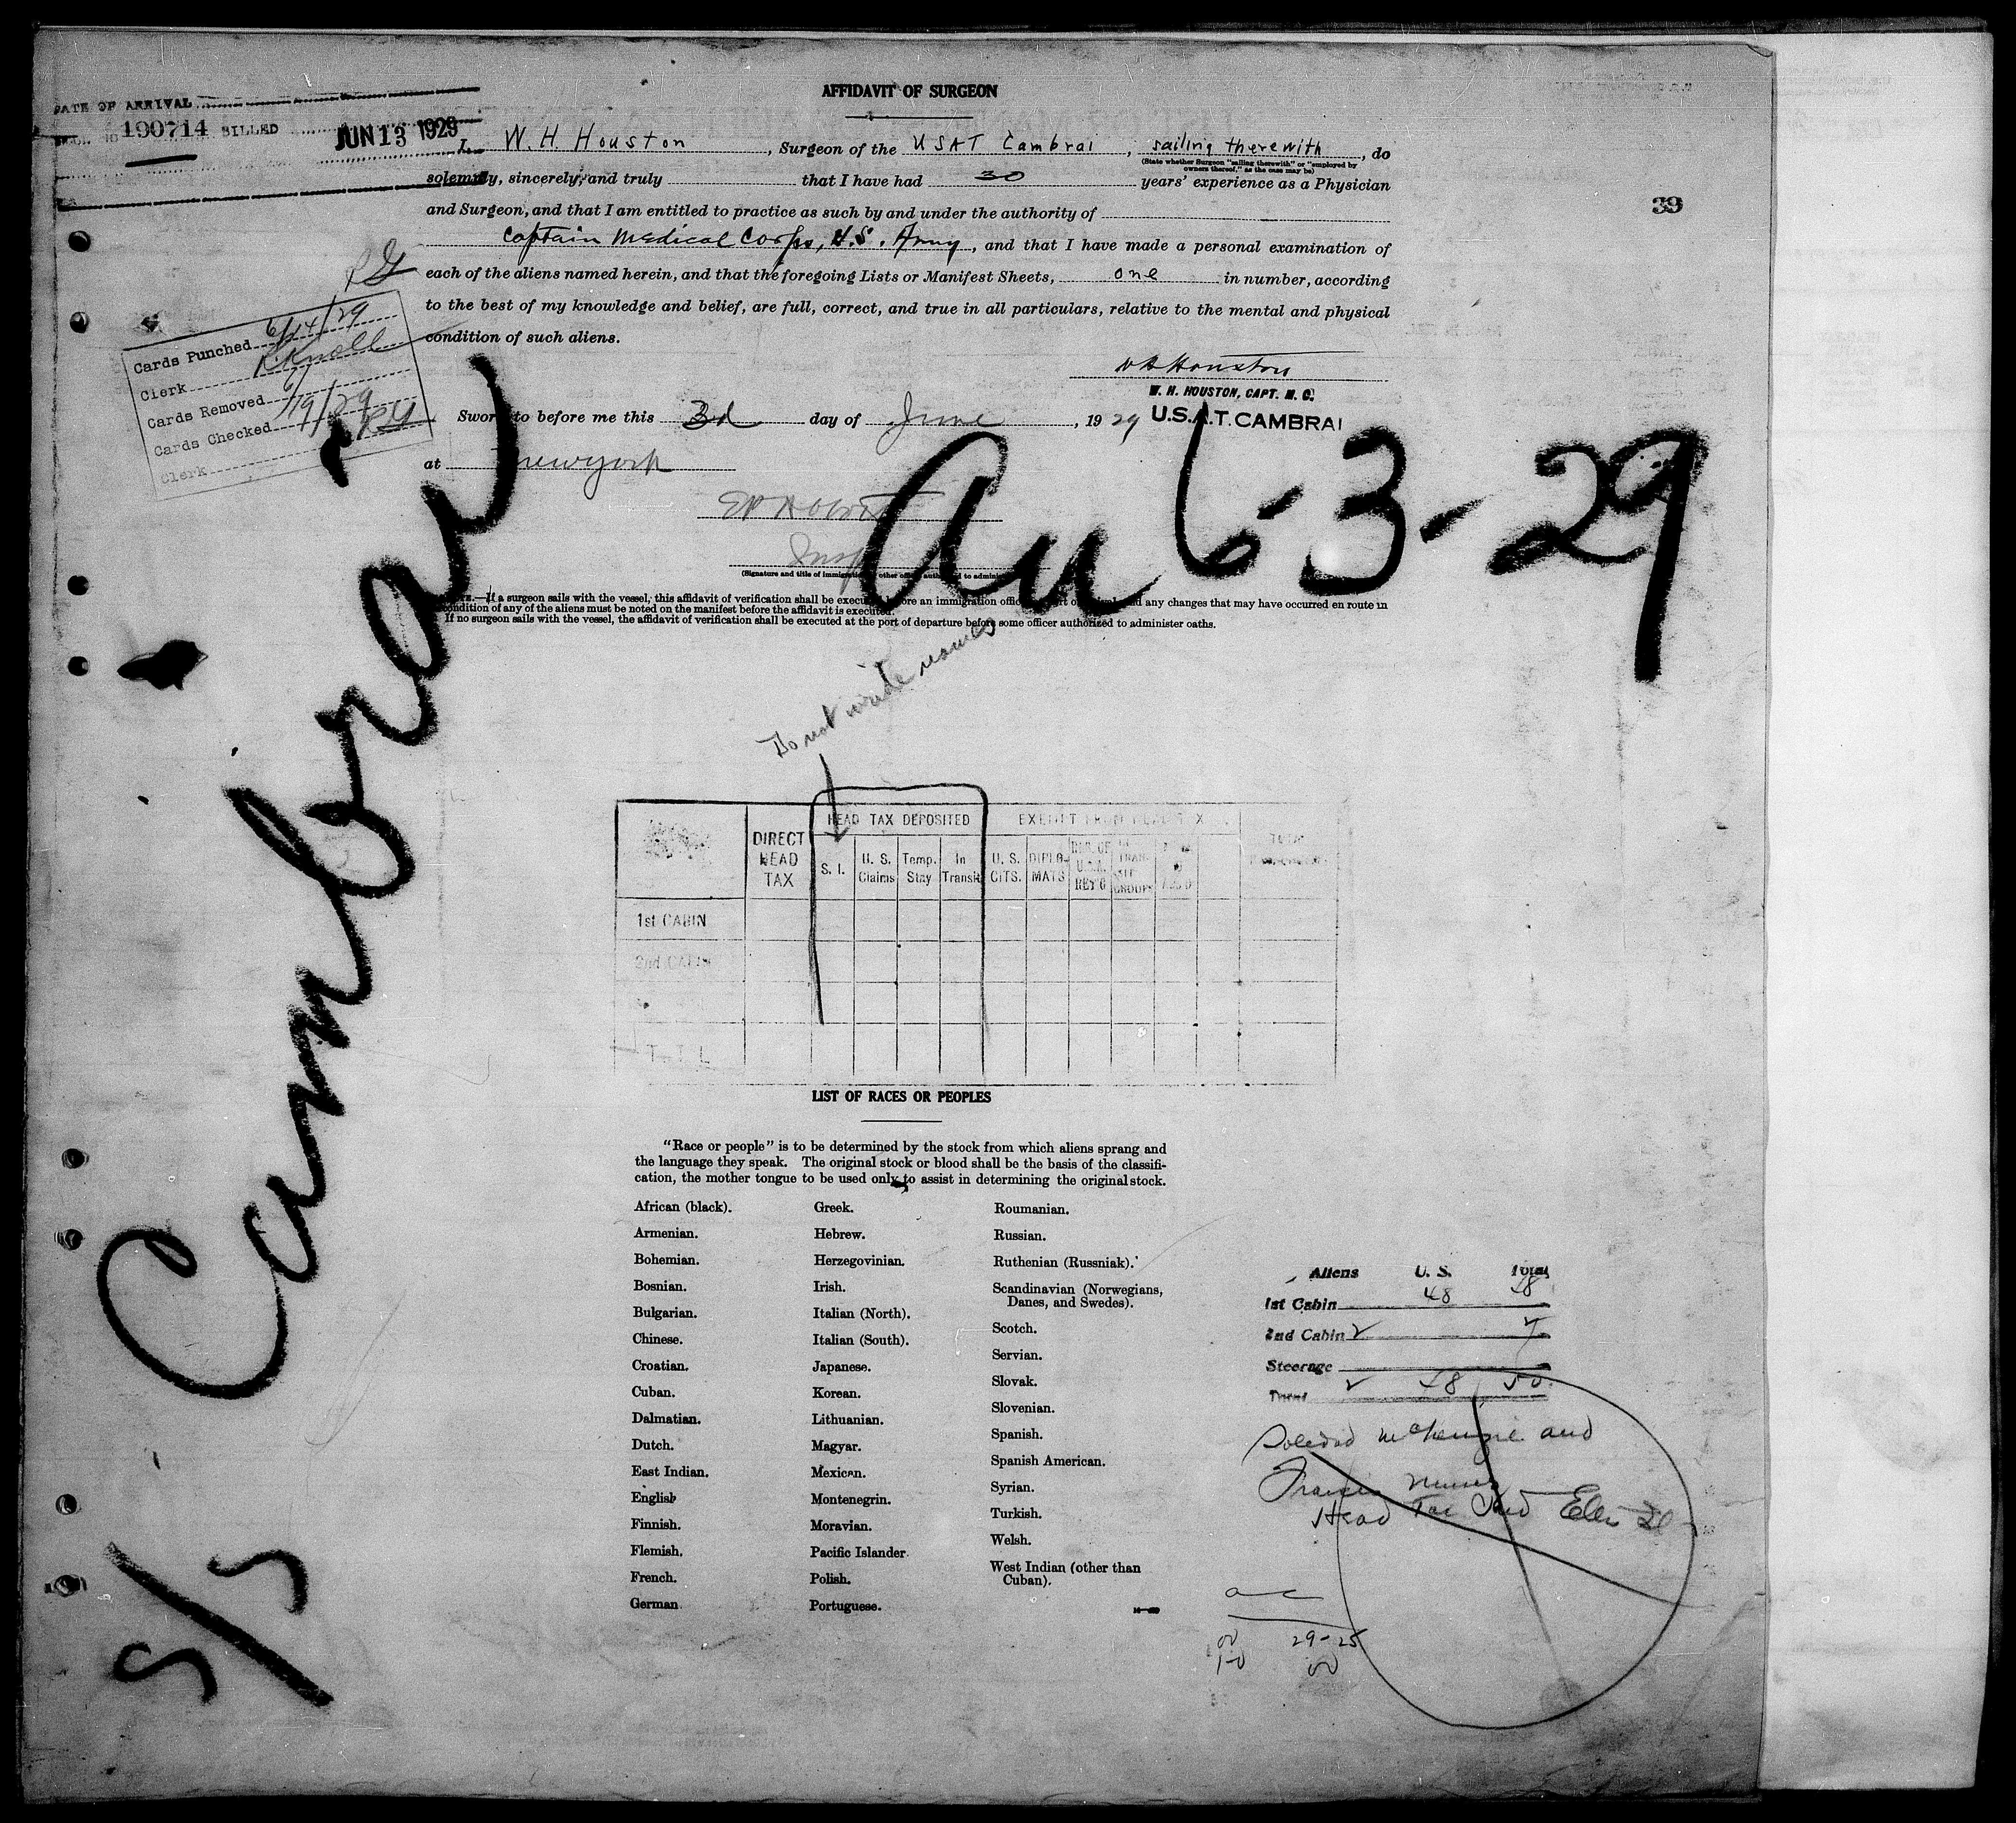 AFFIDAVIT OF SURGEON
DATE OF ARRIVAL
190714 BILLED JUN 13 1929
I, W. H. Houston, Surgeon of the USAT Cambrai, sailing therewith, do
(State whether Surgeon "sailing therewith" or "employed by
owners thereof," as the case may be)
solemnly, sincerely, and truly that I have had 30 years' experience as a Physician
39
and Surgeon, and that I am entitled to practice as such by and under the authority of
Captain Medical Corps, U.S. Army, and that I have made a personal examination of
each of the aliens named herein, and that the foregoing Lists or Manifest Sheets, one in number, according
to the best of my knowledge and belief, are full, correct, and true in all particulars, relative to the mental and physical
condition of such aliens.
Cards Punched 6/14/29
Clerk R. Knoll
Cards Removed
Cards Checked 6/19/29
Clerk
W H Houston
W. H. HOUSTON, CAPT. M. C.
U.S.A.T. CAMBRAI
Sworn to before me this 3d day of June, 1929
at New York
Insp
(Signature and title of immigration or other officer authorized to
Au 6-3-29
S/S Cambrai
NOTE.—If a surgeon sails with the vessel, this affidavit of verification shall be executed before an immigration officer and any changes that may have occurred en route in
condition of any of the aliens must be noted on the manifest before the affidavit is executed.
If no surgeon sails with the vessel, the affidavit of verification shall be executed at the port of departure before some officer authorized to administer oaths.
Do not write names
DIRECT HEAD TAX
HEAD TAX DEPOSITED
EXEMPT FROM HEAD TAX
S. I.
U. S. Claims
Temp. Stay
In Transit
U. S. CITS.
DIPLO-MATS
1st CABIN
2nd CABIN
LIST OF RACES OR PEOPLES
"Race or people" is to be determined by the stock from which aliens sprang and
the language they speak. The original stock or blood shall be the basis of the classifi-
cation, the mother tongue to be used only to assist in determining the original stock.
African (black).
Armenian.
Bohemian.
Bosnian.
Bulgarian.
Chinese.
Croatian.
Cuban.
Dalmatian.
Dutch.
East Indian.
English
Finnish.
Flemish.
French.
German
Greek.
Hebrew.
Herzegovinian.
Irish.
Italian (North).
Italian (South).
Japanese.
Korean.
Lithuanian.
Magyar.
Mexican.
Montenegrin.
Moravian.
Pacific Islander
Polish.
Portuguese.
Roumanian.
Russian.
Ruthenian (Russniak).
Scandinavian (Norwegians,
Danes, and Swedes).
Scotch.
Servian.
Slovak.
Slovenian.
Spanish.
Spanish American.
Syrian.
Turkish.
Welsh.
West Indian (other than
Cuban).
Aliens U. S. Total
1st Cabin 48 48
2nd Cabin 2 2
Steerage
Total 2 48 50
Soledad McKenzie and
Head Tax
29-25